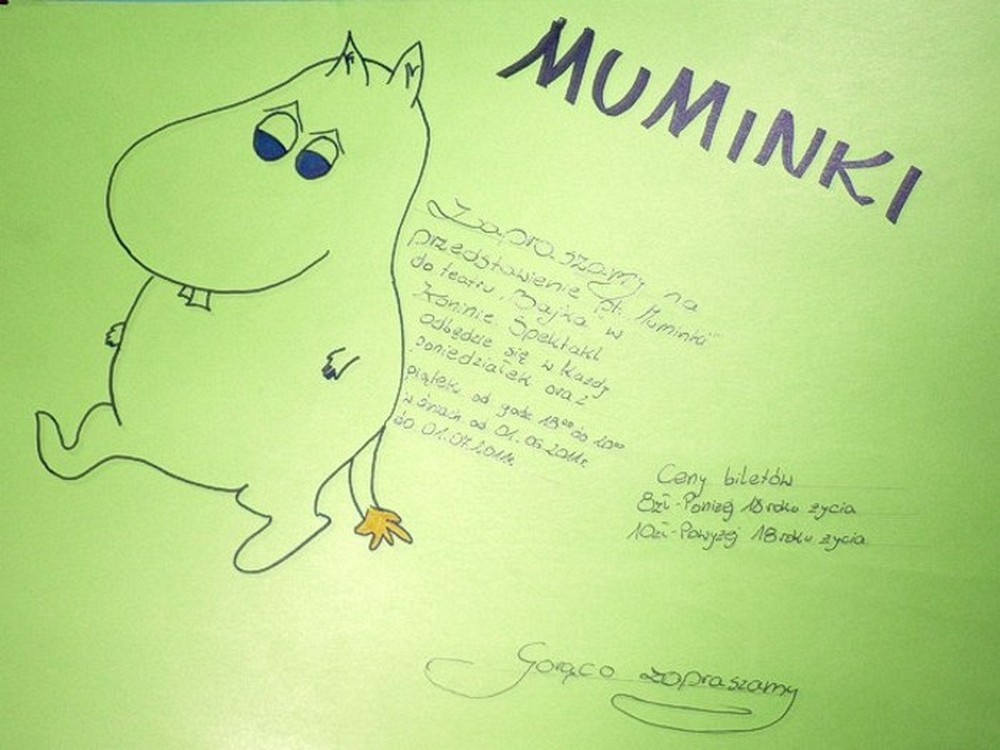 MUMINKI
Zapraszamy na
przedstawienie pt. "Muminki"
do teatru „Bajka w
Koninie. Spektakl
odbędzie się w każdy
poniedziałek oraz
piątek od godz. 18⁰⁰ do 20⁰⁰
w dniach od 01.06.2011r.
do 01.07.2011r.
Ceny biletów
8zł-Poniżej 18 roku życia
10zł-Powyżej 18 roku życia
Gorąco zapraszamy